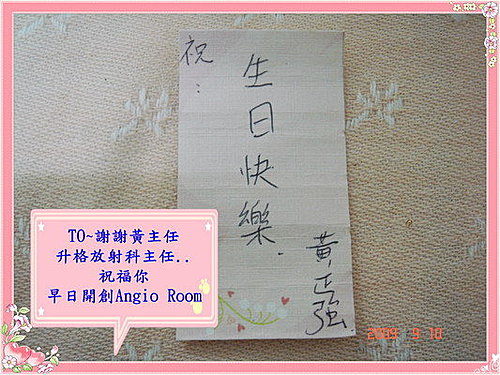 祝：
生日快樂.
黃正強
TO~謝謝黃主任
升格放射科主任..
祝福你
早日開創Angio Room
2009 9 10